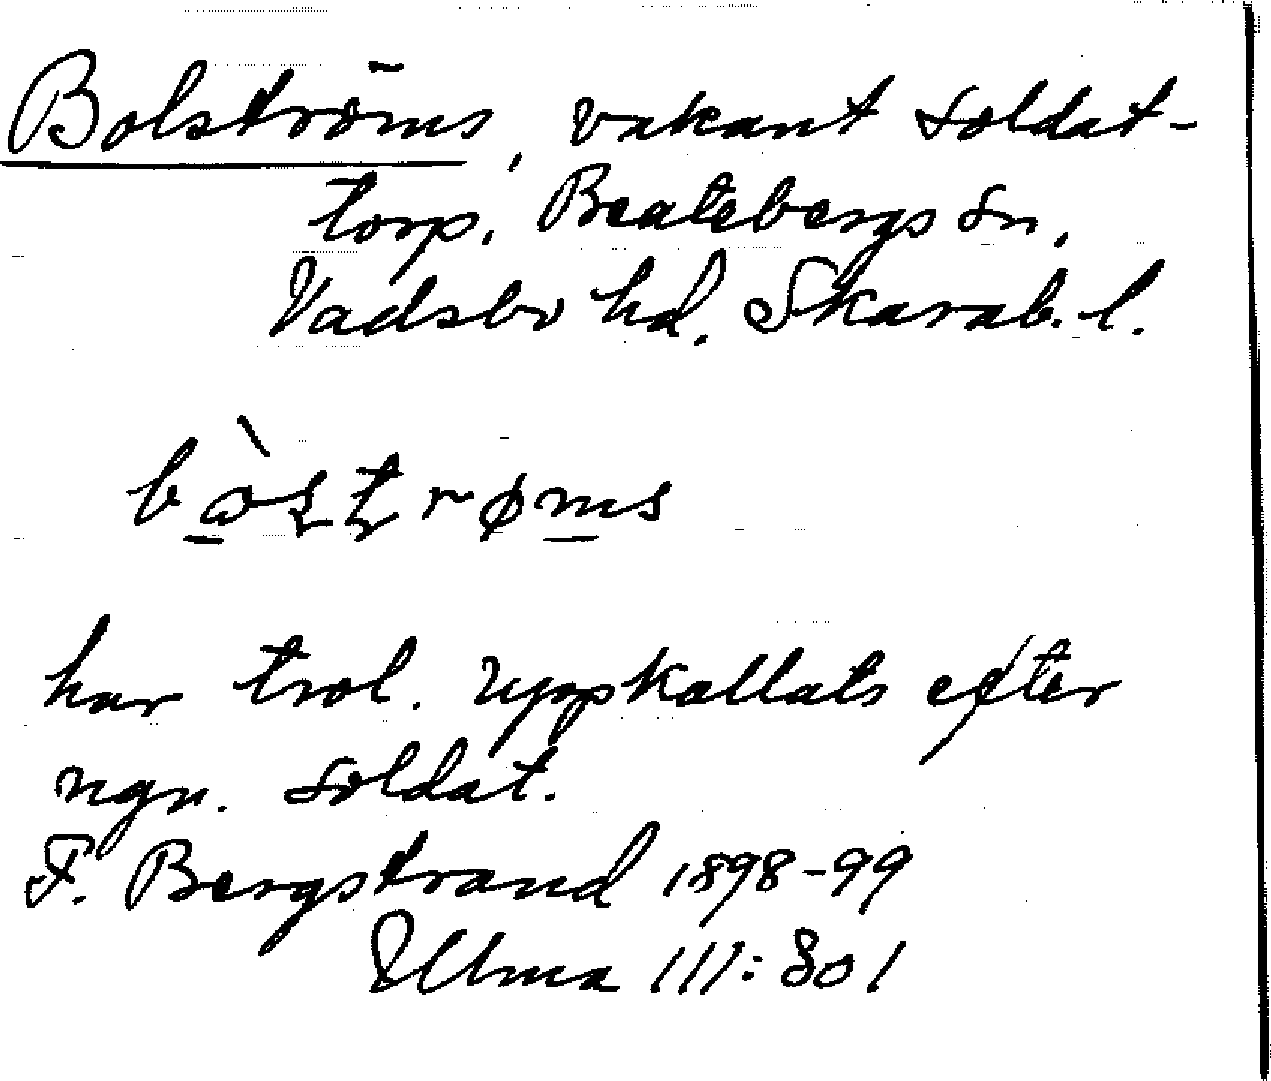 Bolströms, vakant soldat-
torp, Beatebergs sn,
Vadsbo hd, Skarab. l.
har trol. uppkallats efter
ngn. soldat.
F. Bergstrand 1898-99
Ulma 111:801